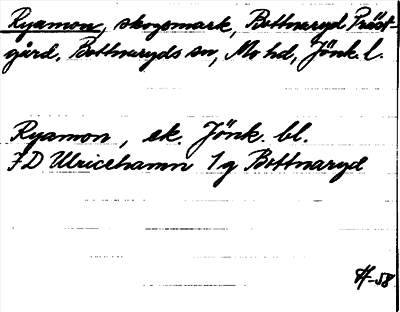 Ryamon, skogsmark, Bottnaryd Präst-
gård, Bottnaryds sn, Mo hd, Jönk. l.
Ryamon, ek. Jönk. bl.
7D Ulricehamn 1g Bottnaryd
H-58